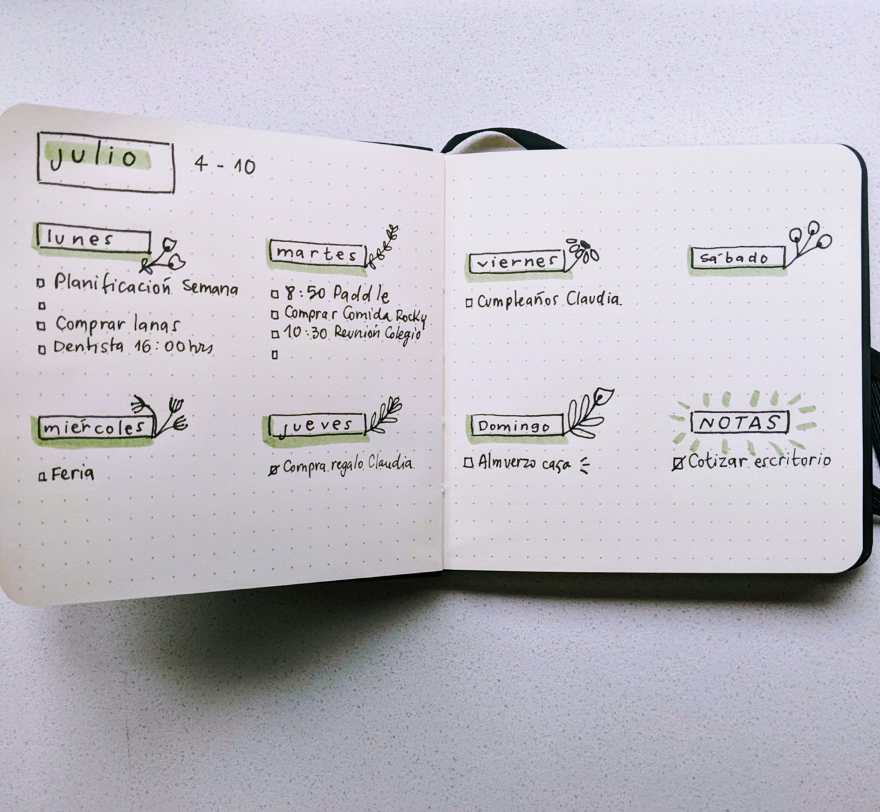 julio 4 - 10
lunes
Planificación Semana
Comprar lanas
Dentista 16:00hrs
martes
8:50 Paddle
Comprar Comida Rocky
10:30 Reunión Colegio
miércoles
Feria
jueves
Compra regalo Claudia
viernes
Cumpleaños Claudia.
sábado
Domingo
Almuerzo casa
NOTAS
Cotizar escritorio